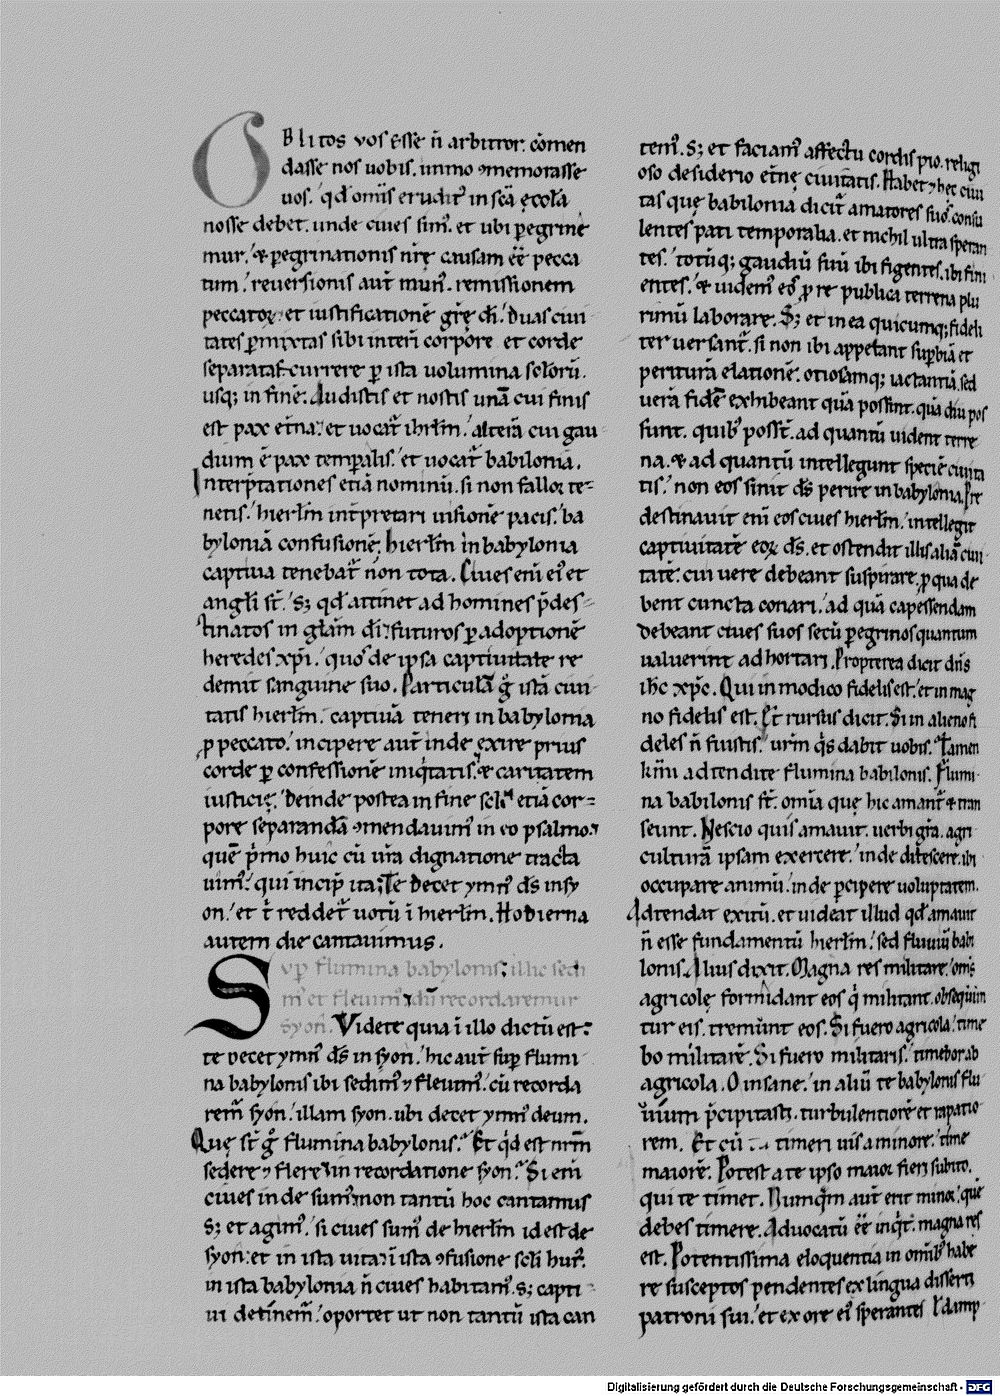 OBlitos vos esse n̄ arbitror. cōmen
dasse nos uobis. immo ꝯmemorasse
uos. qd̄ om̄is erudit᷒ in scā ęcclā
nosse debet. unde ciues sim᷒. et ubi ꝑegrine
mur. & ꝑegrinationis nr̄ę causam eē̄ pecca
tum. reuersionis aut̄ mun᷒. remissionem
peccatoꝝ. et iustificationē grę̄ dī. Duas ciui
tates ꝑmixtas sibi interī corpore et corde
separatas. currere ꝑ ista uolumina sclōrū.
usq; in finē. Audistis et nostis unā cui finis
est pax etn̄a. et uocat̄ ihrlm̄. alterā cui gau
dium ē pax temꝑalis. et uocat̄ babilonia.
Interp̄tationes etiā nominū. si non falloꝛ te=
netis. hierlm̄ int̄pretari uisionē pacis. ba
byloniā confusionē. hierlm̄ in babylonia
captiua tenebat̄ non tota. Ciues enī ei᷒ et
anglī st̄. s; qd̄ attinet ad homines p̄des=
tinatos in glām dī. futuros ꝑ adoptionē
heredes xp̄i. quos de ipsa captiuitate re
demit sanguine suo. Particulā g̊ istā ciui
tatis hierlm̄. captiuā teneri in babylonia
ꝓ peccato. incipere aut̄ inde exire prius
corde ꝑ confessionē iniq̄tatis. & caritatem
iusticię. Deinde postea in fine sclī etiā cor=
pore separandā ꝯmendauim᷒ in eo psalmo.
quē p̄mo huic cū ur̄a dignatione tracta
uim᷒. qui incip̄ ita; Te decet ymn᷒ ds̄ in sy
on. et t̄ reddet̄ uotū ī hierlm̄. Hodierna
autem die cantauimus.
Sup̄ flumina babylonis. illic sedi
m᷒ et fleuim᷒. dū recordaremur
syon. Videte quia ī illo dictū est:
te decet ymn᷒ ds̄ in syon. hic aut̄ suꝑ flumi
na babylonis ibi sedim᷒ ⁊ fleuim᷒. cū recorda
rem᷒ syon. illam syon. ubi decet ymn᷒ deum.
Quę st̄ g̊ flumina babylonis. Et qd̄ est nrm̄
sedere ⁊ flere in recordatione syon. Si enī
ciues inde sum᷒. non tantū hoc cantamus
s; et agim᷒. si ciues sum᷒ de hierlm̄ id est de
syon. et in ista uita. ī ista ꝯfusione sclī hui᷒.
in ista babylonia n̄ ciues habitam᷒. s; capti
ui detinem᷒. oportet ut non tantū ista can
tem᷒. s; et faciam᷒ affectu cordis pio. religi
oso desiderio etn̄ę ciuitatis. Habet ⁊ hec ciui
tas quę babilonia dicit̄ amatores suos. consu
lentes paci temporalia. et nichil ultra speran
tes. totūq; gaudiū suū ibi figentes. ibi fini
entes. & uidem᷒ eos ꝓ re publica terrena plu
rimū laborare. S; et in ea quicumq; fideli
ter uersant̄. si non ibi appetant suꝑbiā et
periturā elationē. otiosamq; iactantiā. sed
uerā fidē exhibeant quā possint. quā diu pos
sunt. quib᷒ posst̄. ad quantū uident terre
na. & ad quantū intellegunt speciē ciuita
tis. non eos sinit ds̄ perire in babylonia. Pre
destinauit enī eos ciues hierlm̄. intellegit
captiuitatē eoꝝ ds̄. et ostendit illis aliā ciui
tatē. cui uere debeant suspirare. ꝓ qua de
bent cuncta conari. ad quā capessendam
debeant ciues suos secū ꝑegrinos quantum
ualuerint adhortari. Propterea dicit dn̄s
ihc xp̄c. Qui in modico fidelis est. et in mag
no fidelis est. Et rursus dicit. Si in alieno fi
deles n̄ fuistis. urm̄ q̄s dabit uobis. Tamen
km̄i adtendite flumina babilonis. Flumi
na babilonis st̄. omīa quę hic amant̄ & tran
seunt. Nescio quis amauit. uerbi grā. agri
culturā ipsam exercere. inde ditescere. ibi
occupare animū. inde ꝑcipere uoluptatem.
Adtendat exitū. et uideat illud qd̄ amauit
n̄ esse fundamentū hierlm̄. sed fluuiū babi
lonis. Alius dixit. Magna res militare. om̄s
agricolę formidant eos q̄ militant. obsequun
tur eis. tremunt eos. Si fuero agricola. time
bo militarē. Si fuero militaris. timebor ab
agricola. O insane. in aliū te babylonis flu
uium p̄cipitasti. turbulentiorē et rapatio
rem. Et cū timeri uis a minore. time
maiorē. Potest a te ipso maior fieri subito.
qui te timet. Numquām aut̄ erit minor. quē
debes timere. Aduocatū eē̄ inqt̄. magna res
est. Potentissima eloquentia in omīb᷒ habe
re susceptos pendentes ex lingua diserti
patroni sui. et ex ore ei᷒ sperantes l damp
Digitalisierung gefördert durch die Deutsche Forschungsgemeinschaft - DFG